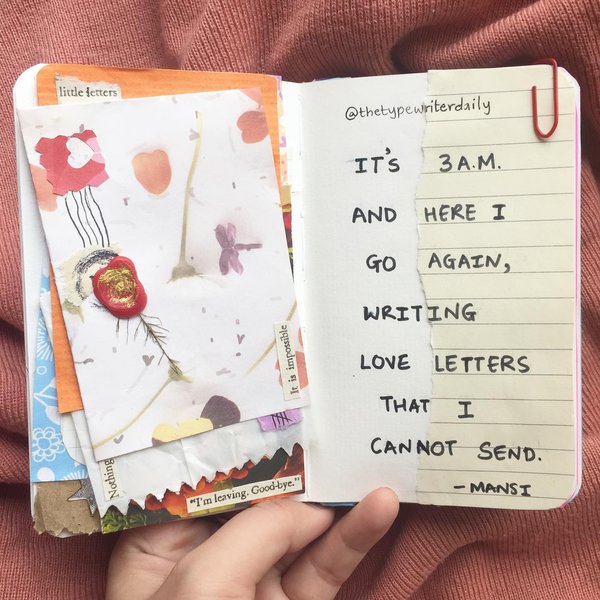 little letters
It is impossible
Nothing
"I'm leaving. Good-bye."
@thetypewriterdaily
IT'S 3 A.M.
AND HERE I
GO AGAIN,
WRITING
LOVE LETTERS
THAT I
CANNOT SEND.
- MANSI